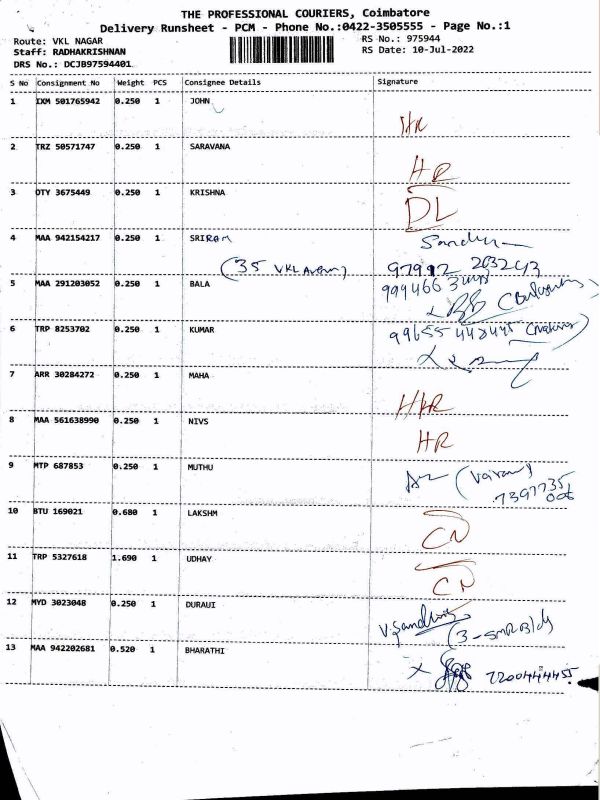 THE PROFESSIONAL COURIERS, Coimbatore
Delivery Runsheet - PCM - Phone No.:0422-3505555 - Page No.:1
Route: VKL NAGAR
RS No.: 975944
Staff: RADHAKRISHNAN
RS Date: 10-Jul-2022
DRS No.: DCJB97594401
S No Consignment No Weight PCS Consignee Details Signature
1 IXM 501765942 0.250 1 JOHN
HR
2 TRZ 50571747 0.250 1 SARAVANA
HR
3 OTY 3675449 0.250 1 KRISHNA
DL
4 MAA 942154217 0.250 1 SRIRAM
(35 VKL
5 MAA 291203052 0.250 1 BALA
6 TRP 8253702 0.250 1 KUMAR
7 ARR 30284272 0.250 1 MAHA
HR
8 MAA 561638990 0.250 1 NIVS
HR
9 MTP 687853 0.250 1 MUTHU
7397735
006
10 BTU 169021 0.680 1 LAKSHM
CN
11 TRP 5327618 1.690 1 UDHAY
CN
12 MYD 3023048 0.250 1 DURAUI
13 MAA 942202681 0.520 1 BHARATHI
7200444455